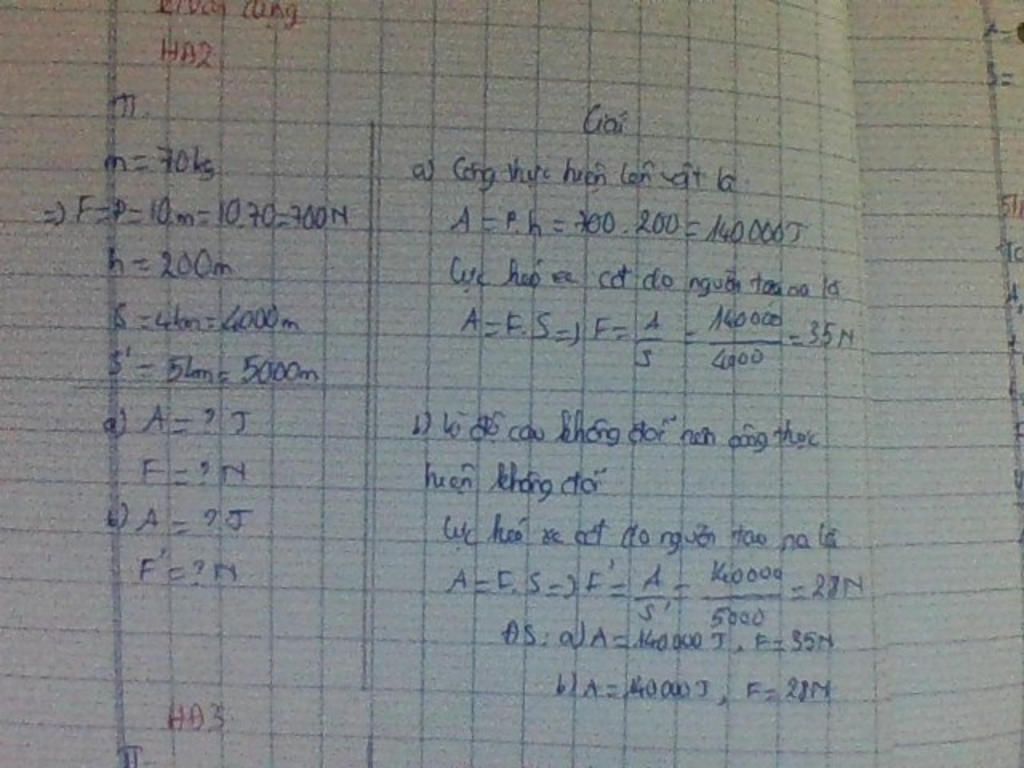 HĐ2
m = 70kg
=) F = P = 10m = 10.70 = 700N
h = 200m
S = 4km = 4000m
S' = 5km = 5000m
a) A = ? J
F = ? N
b) A = ? J
F' = ? N
Giải
a) Công thực hiện lên vật là
A = P.h = 700.200 = 140000J
Lực kéo xe cđ do người tạo ra là
A = F.S =) F = A/S = 140000/4000 = 35N
b) Vì độ cao không đổi nên công thực
hiện không đổi
Lực kéo xe cđ do người tạo ra là
A = F.S =) F' = A/S' = 140000/5000 = 28N
ĐS: a) A = 140000J, F = 35N
b) A = 140000J, F = 28N
HĐ3
II.